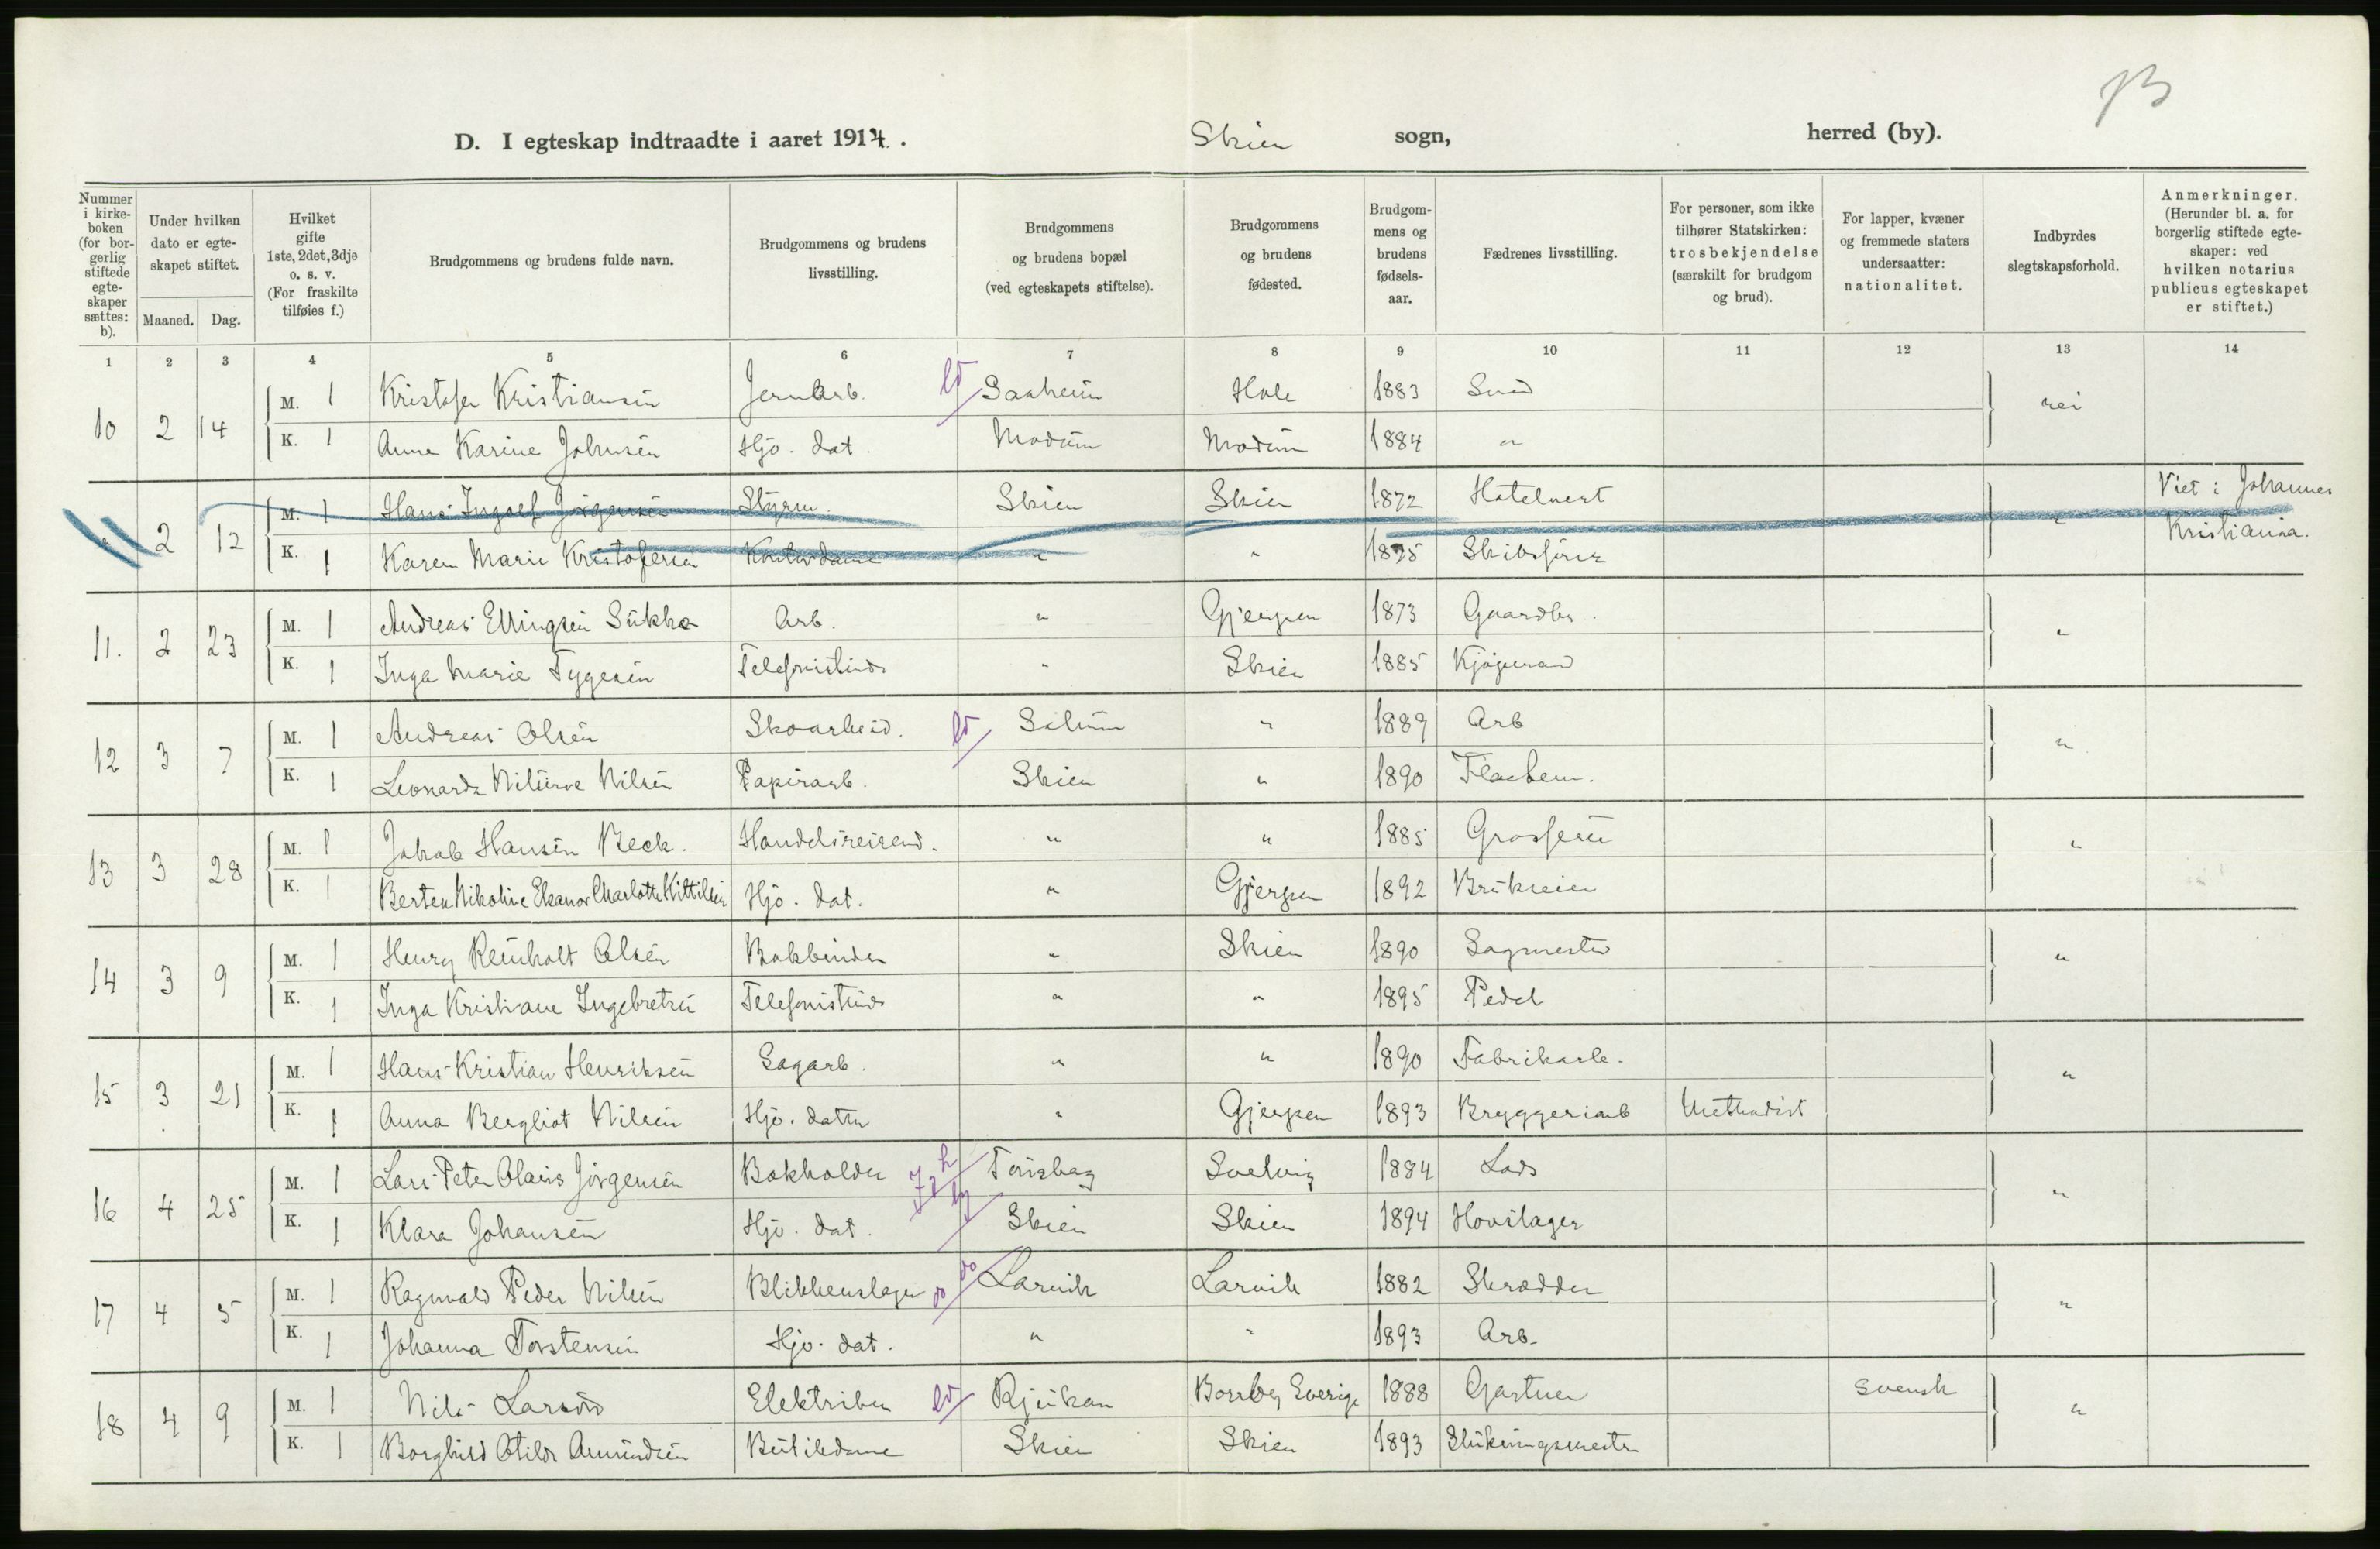 73
D. I egteskap indtraadte i aaret 1914. Skien sogn, herred (by).
Nummer i kirkeboken (for borgerlig stiftede egteskaper sættes: b).
Under hvilken dato er egteskapet stiftet.
Maaned. Dag.
Hvilket gifte 1ste, 2det, 3dje o. s. v. (For fraskilte tilføies f.)
Brudgommens og brudens fulde navn.
Brudgommens og brudens livsstilling.
Brudgommens og brudens bopæl (ved egteskapets stiftelse).
Brudgommens og brudens fødested.
Brudgommens og brudens fødselsaar.
Fædrenes livsstilling.
For personer, som ikke tilhører Statskirken: trosbekjendelse (særskilt for brudgom og brud).
For lapper, kvæner og fremmede staters undersaatter: nationalitet.
Indbyrdes slegtskapsforhold.
Anmerkninger. (Herunder bl. a. for borgerlig stiftede egteskaper: ved hvilken notarius publicus egteskapet er stiftet.)
1 2 3 4 5 6 7 8 9 10 11 12 13 14
10 2 14 M. 1 Kristofer Kristiansen Jernarb. Saaheim Hole 1883 Smed nei
K. 1 Anna Karine Johnsen Hjo. dat. Modum Modum 1884 "
2 12 M. 1 Hans Ingolf Jörgensen Styrm. Skien Skien 1872 Hotelvert " Viet i Johannes
K. 1 Karen Marie Kristofersen Kontordame " " 1875 Skibsfører Kristiania.
11. 2 23 M. 1 Andreas Ellingsen Sukke Arb. " Gjerpen 1873 Gaardbr. "
K. 1 Inga Marie Tygesen Telefonistinde " Skien 1885 Kjøpmand
12 3 7 M. 1 Andreas Olsen Skoarbeid. Solum " 1889 Arb "
K. 1 Leonarda Nilsen Papirarb. Skien " 1890
13 3 28 M. 1 Jakob Hansen Beck. Handelsreisend. " " 1885 Grosserer "
K. 1 Nikoline Eleanor Charlotte Kittilsen Hjo. dat. " Gjerpen 1892 Brukseier
14 3 9 M. 1 Henry Reinholt Olsen Bokbinder " Skien 1890 Sagmester "
K. 1 Inga Kristiane Ingebretsen Telefonistinde " " 1895 Pedel
15 3 21 M. 1 Hans Kristian Henriksen Sagarb. " " 1890 Fabrikarb. "
K. 1 Anna Bergliot Nilsen Hjo. datter " Gjerpen 1893 Bryggeriarb Methodist
16 4 25 M. 1 Lars Peter Olaus Jörgensen Bokholder Svelvig 1884 Lods "
K. 1 Klara Johansen Hjo. dat. Skien Skien 1894 Hovslager
17 4 5 M. 1 Ragnvald Peder Nilsen Blikkenslager Larvik Larvik 1882 Skrædder "
K. 1 Johanna Torstensen Hjo. dat. " " 1893 Arb.
18 4 9 M. 1 Nils Larsson Elektriker Rjukan Borrby Sverige 1888 Gartner svensk "
K. 1 Borghild Otilde Amundsen Butikdame Skien Skien 1893